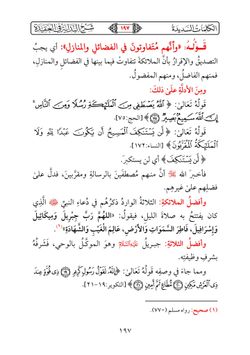 الكلمات السديدة
١٩٧
شرح البداية في العقيدة
قوله: «وأنهم متفاوتون في الفضائل والمنازل»: أي يجب
التصديق والإقرار بأن الملائكة تتفاوت فيما بينها في الفضائل والمنازل،
فمنهم الفاضل، ومنهم المفضول.
ومن الأدلة على ذلك:
قوله تعالى: ﴿ٱللَّهُ يَصْطَفِى مِنَ ٱلْمَلَٰٓئِكَةِ رُسُلًا وَمِنَ ٱلنَّاسِ ۚ
إِنَّ ٱللَّهَ سَمِيعٌۢ بَصِيرٌ ٧٥﴾ [الحج: ٧٥].
قوله تعالى: ﴿لَّن يَسْتَنكِفَ ٱلْمَسِيحُ أَن يَكُونَ عَبْدًا لِّلَّهِ وَلَا
ٱلْمَلَٰٓئِكَةُ ٱلْمُقَرَّبُونَ ۚ﴾ [النساء: ١٧٢].
﴿لَّن يَسْتَنكِفَ﴾ أي لن يستكبر.
فأخبر الله ﷻ أن منهم مصطفين بالرسالة ومقربين، فدل على
فضلهم على غيرهم.
وأفضل الملائكة: الثلاثة الوارد ذكرهم في دعاء النبي ﷺ الذي
كان يفتتح به صلاة الليل، فيقول: «اللهم رب جبريل وميكائيل
وإسرافيل، فاطر السموات والأرض، عالم الغيب والشهادة»(١).
وأفضل الثلاثة: جبريل عليه السلام وهو الموكل بالوحي، فشرفه
بشرف وظيفته.
ومما جاء في وصفه قوله تعالى: ﴿إِنَّهُۥ لَقَوْلُ رَسُولٍ كَرِيمٍ ١٩ ذِى قُوَّةٍ عِندَ
ذِى ٱلْعَرْشِ مَكِينٍ ٢٠ مُّطَاعٍ ثَمَّ أَمِينٍ ٢١﴾ [التكوير: ١٩-٢١].
(١) صحيح: رواه مسلم (٧٧٠).
١٩٧